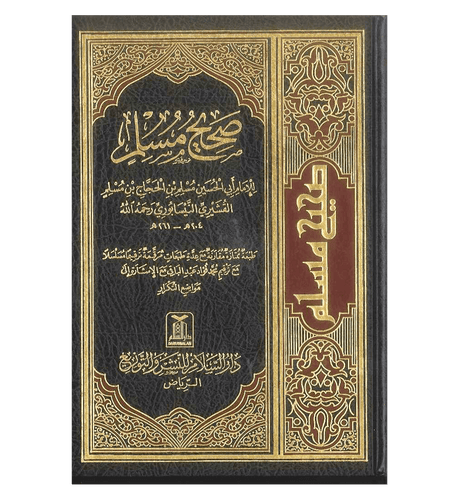 صحيح مسلم
للإمام أبي الحسين مسلم بن الحجاج بن مسلم
القشيري النيسابوري رحمه الله
٢٠٤هـ — ٢٦١هـ
طبعة ممتازة مقارنة مع عدة طبعات مرقمة ترقيما مسلسلا
مع ترقيم محمد فؤاد عبد الباقي مع الإشارة إلى
مواضع التكرار
دار السلام للنشر والتوزيع
الرياض
صحيح مسلم